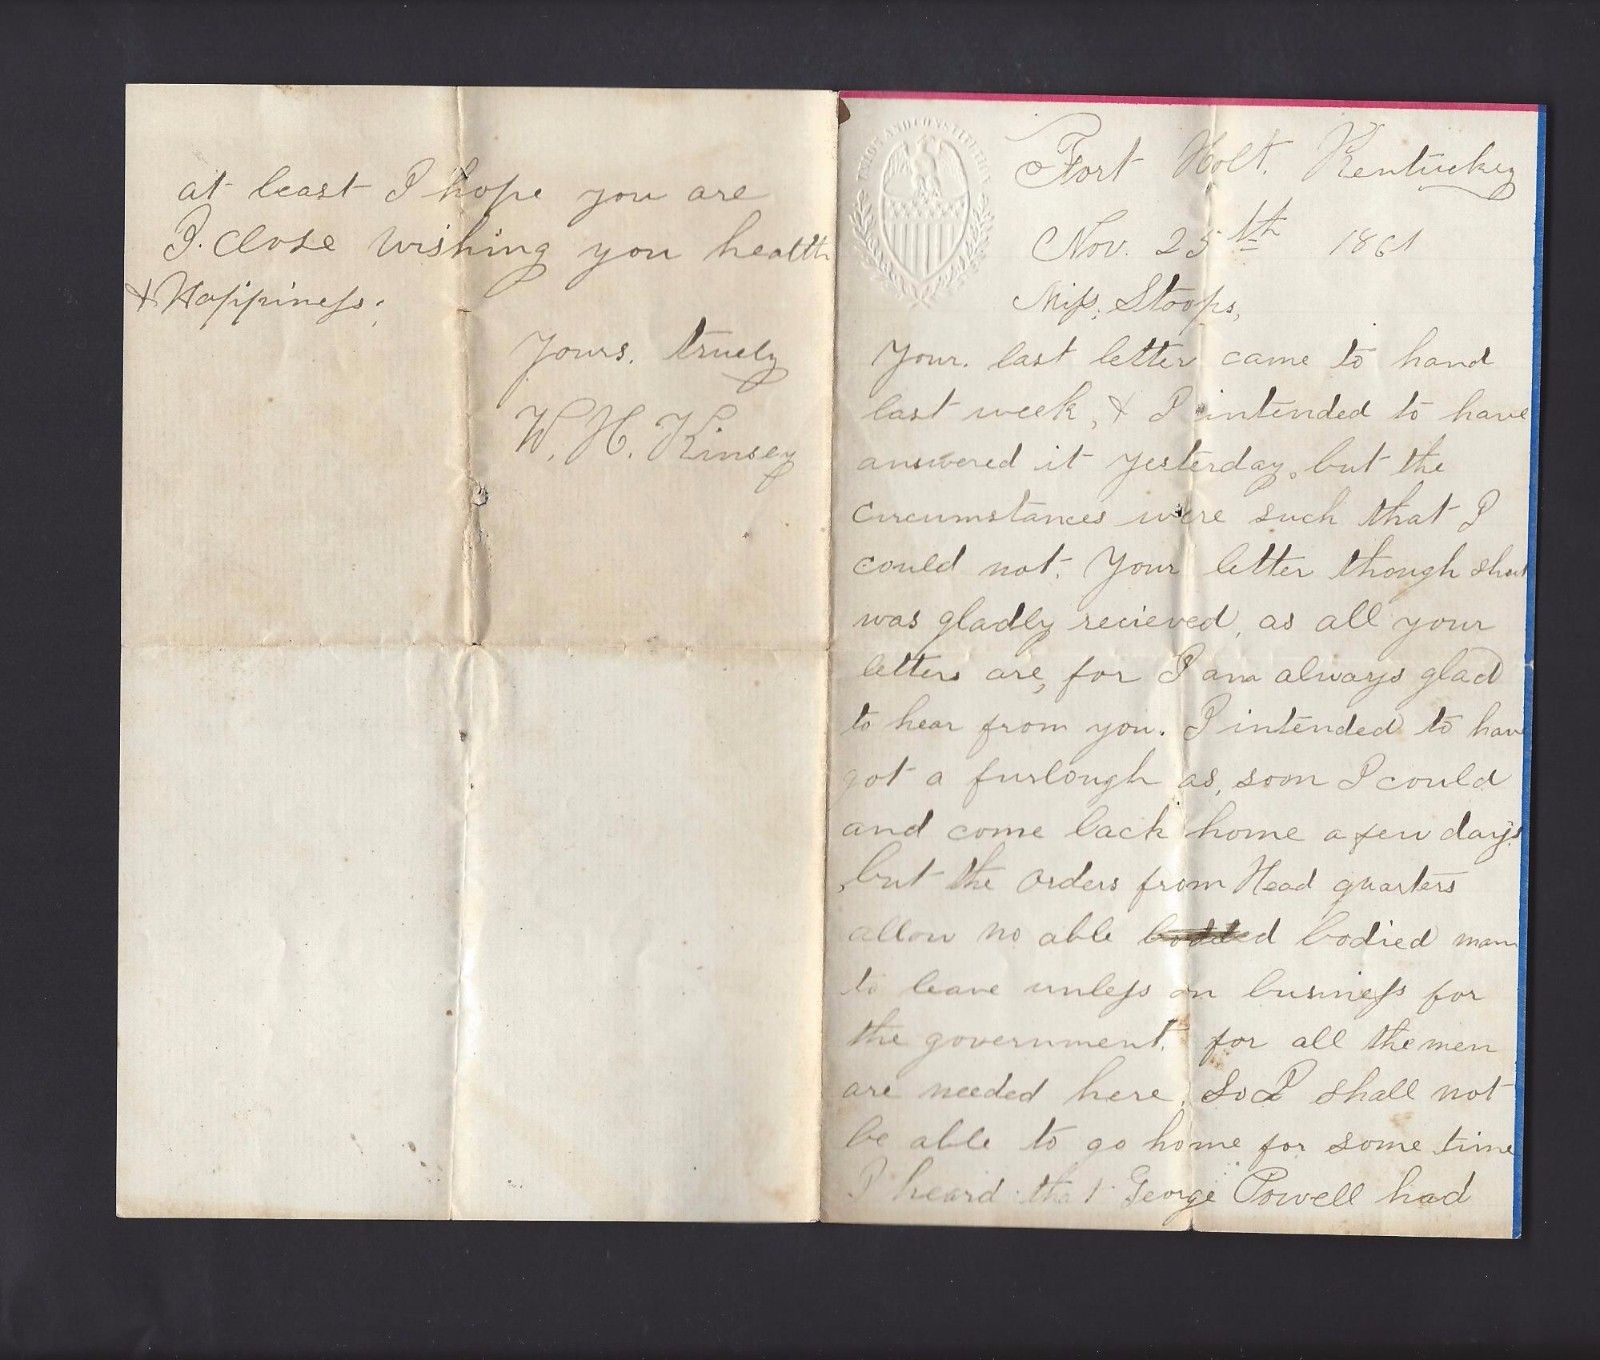 at least I hope you are
I. close wishing you health
& Happiness.
Yours. truely
W. H. Kinsey
UNION AND CONSTITUTION
Fort Holt. Kentuckey
Nov. 25th 1861
Miss. Stoops,
Your. last letter came to hand
last week, & I intended to have
answered it yesterday. but the
circumstances were such that I
could not. Your letter though short
was gladly recieved, as all your
letters are, for I am always glad
to hear from you. I intended to have
got a furlough as, soon I could
and come back home a few days
, but the orders from Head quarters
allow no able bodied man
to leave unless on business for
the government. for all the men
are needed here. So I shall not
be able to go home for some time
I heard that George Powell had